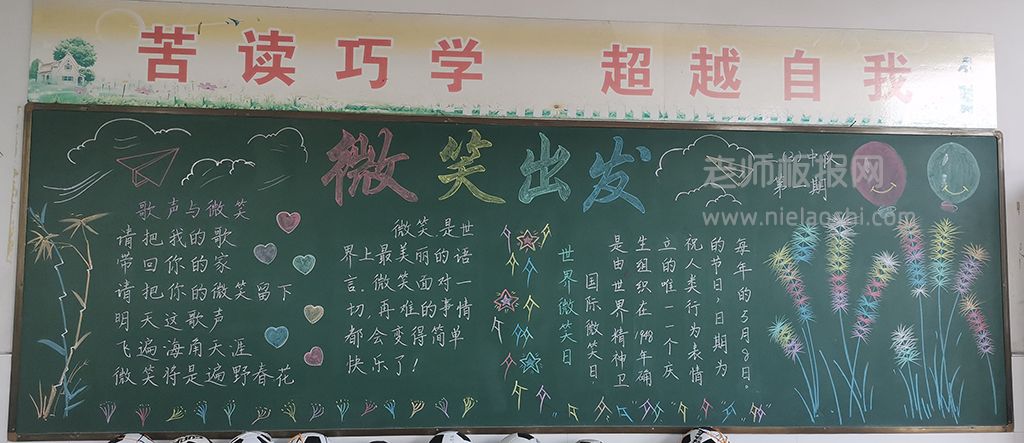 苦读巧学 超越自我
微笑出发
(3)中队
第 期
老师板报网
www.nielaoshi.com
歌声与微笑
请把我的歌
带回你的家
请把你的微笑留下
明天这歌声
飞遍海角天涯
微笑将是遍野春花
微笑是世
界上最美丽的语
言。微笑面对一
切，再难的事情
都会变得简单
快乐了！
世界微笑日
每年的5月8日。
的节日，日期为
祝人类行为表情
立的唯一一个庆
生组织在1948年确
是由世界精神卫
国际微笑日